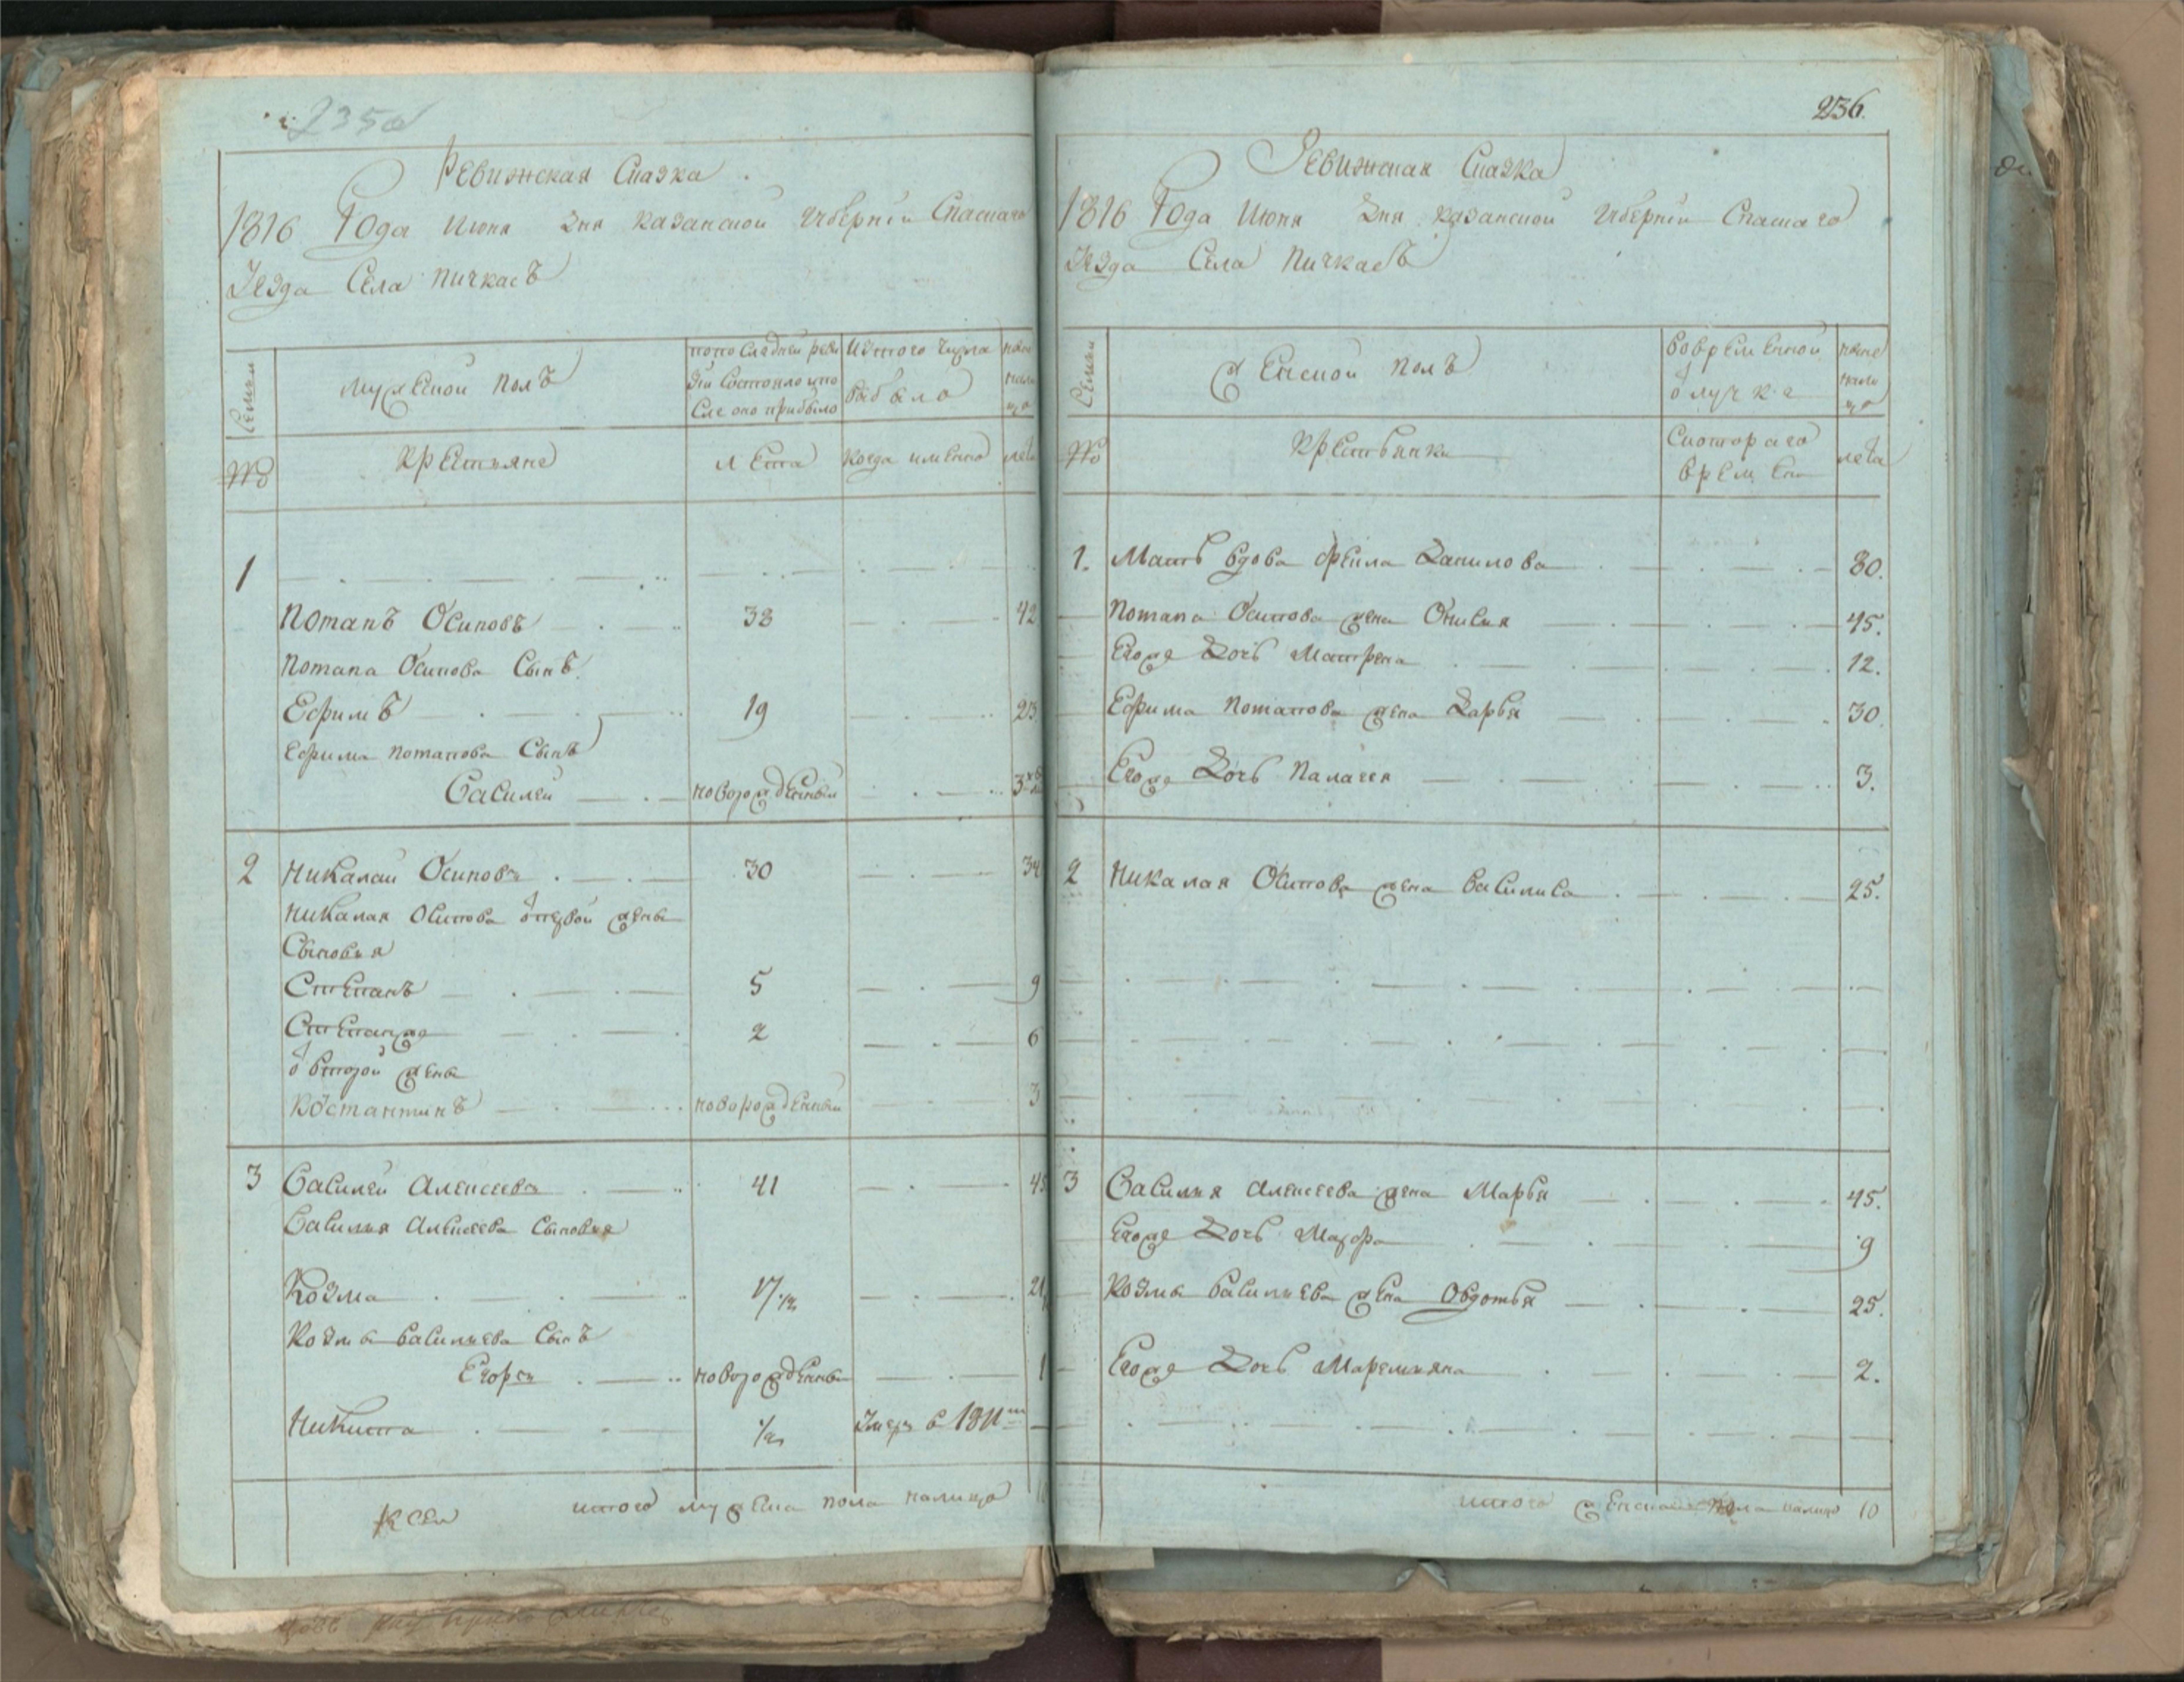 235об
Ревижская Сказка
1816 Года Июня Дня казанской Губернiи Спаскаго
Уезда Села пичкасъ
Семьи
Мужеской полъ
попоследней реви
зiи Состояло ипо
сле оно прибыло
Изтого числа
выбыло
ныне
нали
цо
№
крестьяне
лета
когда имянно
лета
1
потапъ Осиповъ 38 42
потапа Осипова Сынъ
Ефимъ 19 23
Ефима потапова Сынъ
Василей новорожденный 3
2 Никалай Осиповъ 30 34
Никалая Осипова отпервой жены
Сыновья
Степанъ 5 9
Степанже 2 6
от второй жены
Костантинъ новорожденный 3
3 Василей Алексеевъ 41 45
Василья Алексеева Сыновья
Козма 17 1/2 21
Козмы Васильева Сынъ
Егоръ новорожденный 1
Никита 1/2 Умеръ в 1811м
итого мужеска пола налицо
236.
Ревижская Сказка
1816 Года Июня Дня казанской Губернiи Спаскаго
Уезда Села пичкасъ
Семьи
Женской полъ
вовременной
отлучке
ныне
нали
цо
№
крестьянки
скотораго
времени
лета
1. Мать вдова Данилова 80.
потапа Осипова жена 45.
Егоже Дочь Матрена 12.
Ефима потапова жена Дарья 30.
Егоже Дочь палагея 3.
2 Никалая Осипова жена Василиса 25.
3 Василья Алексеева жена Марья 45.
Егоже Дочь Мавра 9
Козмы Васильева жена Овдотья 25.
Егоже Дочь Маремьяна 2.
итого женскаго пола налицо 10